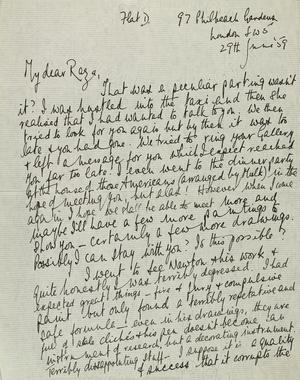 Flat D 97 Philbeach Gardens
London SW5
29th June '59
My dear Raza,
That was a peculiar parting wasn't
it? I was hustled into the taxi and then she
realised that I had wanted to talk to you. We then
tried to look for you again but by then it was too
late & you had gone. We tried to ring your Gallery
& left a message for you which I expect reached
you far too late. I even went to the dinner party
at the house of those Americans (arranged by Mulk) in the
hope of meeting you, but alas! However when I come
again, I hope we shall be able to meet more and
maybe I'll have a few more paintings to
show you – certainly a few more drawings.
Possibly I can stay with you? Is this possible?
I went to see Newton & his work &
quite honestly I was terribly depressed. I had
expected great things – fire & fury & compulsive
paint but only found a terribly repetative and
safe formula – even in his drawings, they are
full of stale clichés & his pen doesn't become an
instrument of research, but a decorating instrument.
Terribly disappointing stuff – I suppose it is a quality
of success that it corrupts the